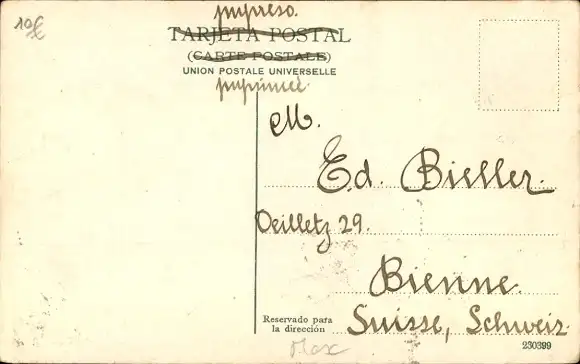 10€
impreso.
TARJETA POSTAL
(CARTE POSTALE)
UNION POSTALE UNIVERSELLE
imprimé.
M.
Ed. Bieller.
Oeilletz 29.
Bienne.
Reservado para
la dirección
Suisse, Schweiz
230399